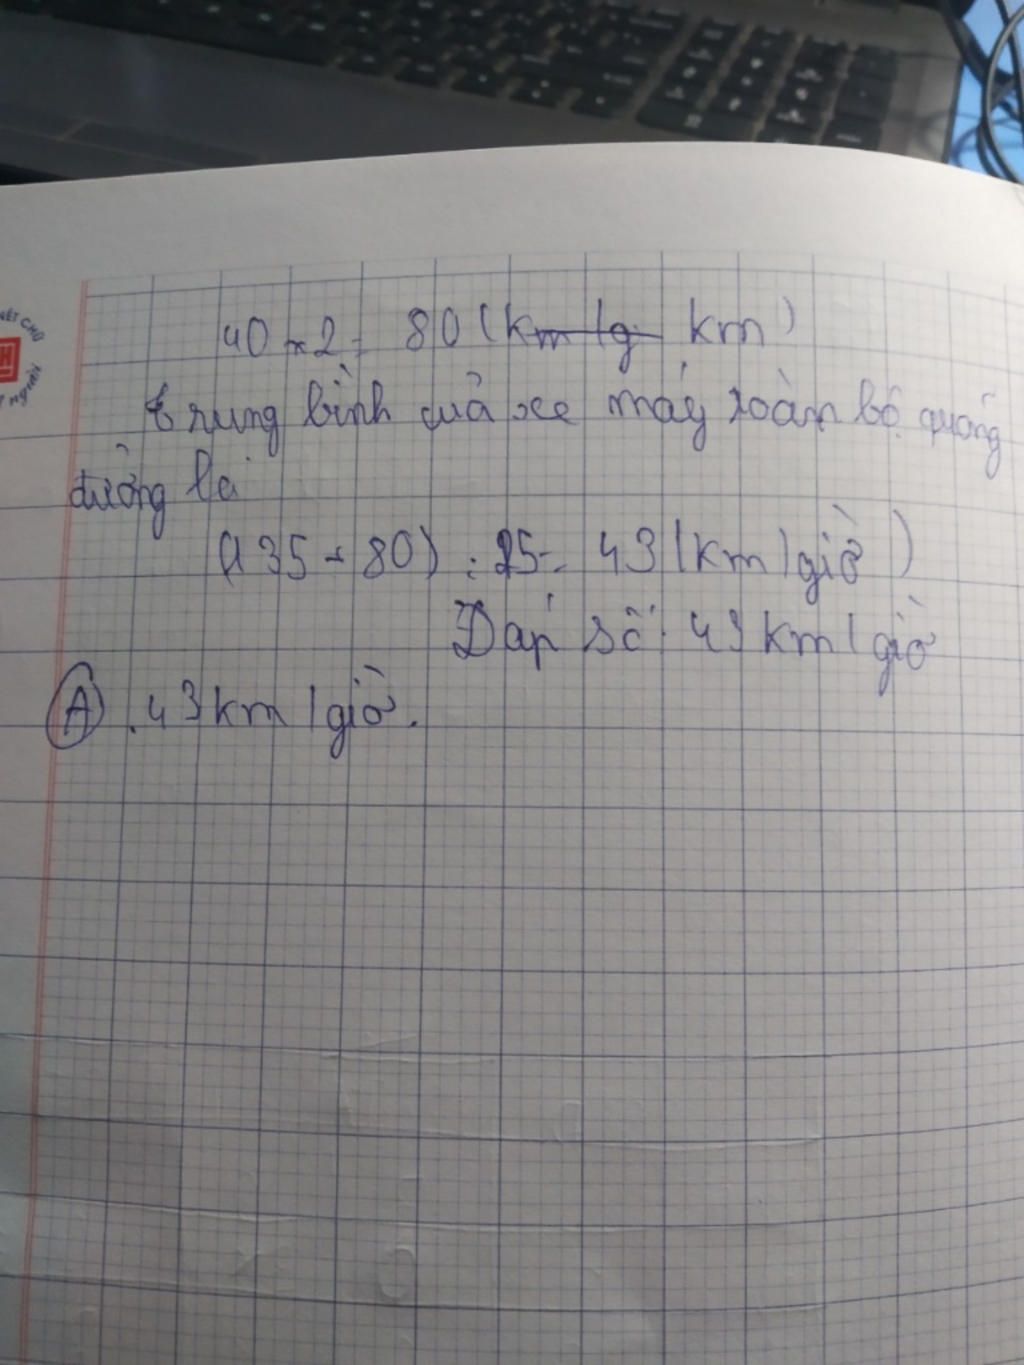 40 x 2 = 80 (km/g km)
trung bình quả xe máy toàn bộ quãng
đường là
(135 + 80) : 25 = 43 (km/giờ)
Đáp số: 43 km/giờ
A. 43 km/giờ.
NÉT CHỮ